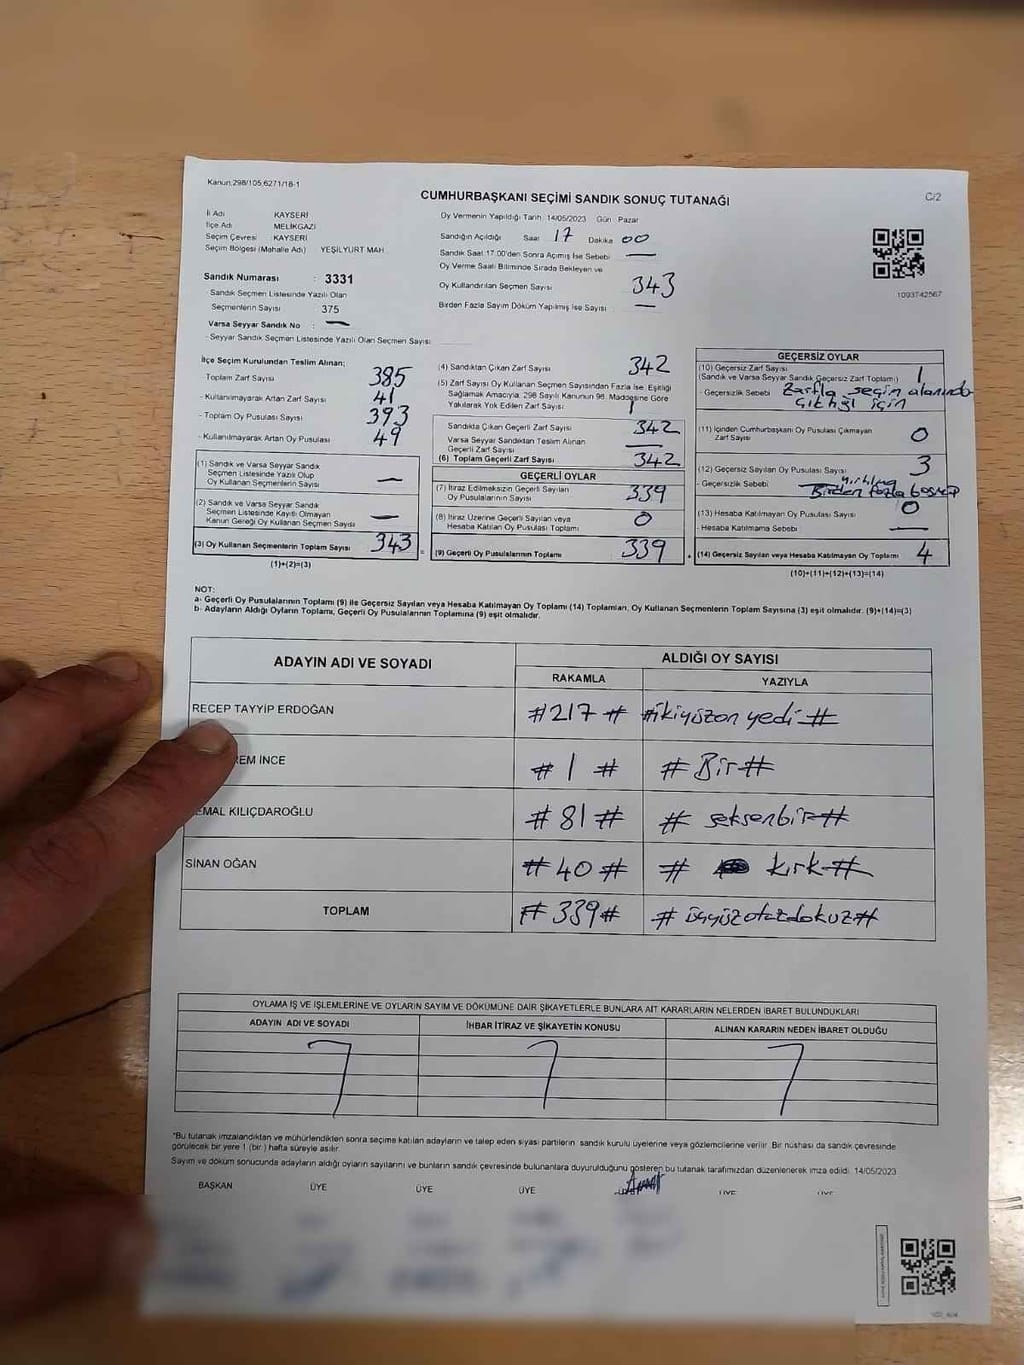 Kanun;298/105;6271/18-1
CUMHURBAŞKANI SEÇİMİ SANDIK SONUÇ TUTANAĞI
C/2
İl Adı KAYSERİ
İlçe Adı MELİKGAZİ
Seçim Çevresi KAYSERİ
Seçim Bölgesi (Mahalle Adı) YEŞİLYURT MAH.
Sandık Numarası : 3331
- Sandık Seçmen Listesinde Yazılı Olan
Seçmenlerin Sayısı 375
Varsa Seyyar Sandık No : —
- Seyyar Sandık Seçmen Listesinde Yazılı Olan Seçmen Sayısı
Oy Vermenin Yapıldığı Tarih 14/05/2023 Gün Pazar
Sandığın Açıldığı Saat 17 Dakika 00
Sandık Saat 17:00'den Sonra Açılmış İse Sebebi —
Oy Verme Saati Bitiminde Sırada Bekleyen ve
Oy Kullandırılan Seçmen Sayısı 343
Birden Fazla Sayım Döküm Yapılmış İse Sayısı —
1093742567
İlçe Seçim Kurulundan Teslim Alınan;
- Toplam Zarf Sayısı 385
- Kullanılmayarak Artan Zarf Sayısı 41
- Toplam Oy Pusulası Sayısı 393
- Kullanılmayarak Artan Oy Pusulası 49
(1) Sandık ve Varsa Seyyar Sandık
Seçmen Listesinde Yazılı Olup
Oy Kullanan Seçmenlerin Sayısı —
(2) Sandık ve Varsa Seyyar Sandık
Seçmen Listesinde Kayıtlı Olmayan
Kanun Gereği Oy Kullanan Seçmen Sayısı —
(3) Oy Kullanan Seçmenlerin Toplam Sayısı 343 =
(1)+(2)=(3)
(4) Sandıktan Çıkan Zarf Sayısı 342
(5) Zarf Sayısı Oy Kullanan Seçmen Sayısından Fazla İse, Eşitliği
Sağlamak Amacıyla, 298 Sayılı Kanunun 98. Maddesine Göre
Yakılarak Yok Edilen Zarf Sayısı 1
Sandıkta Çıkan Geçerli Zarf Sayısı 342
Varsa Seyyar Sandıktan Teslim Alınan
Geçerli Zarf Sayısı —
(6) Toplam Geçerli Zarf Sayısı 342
GEÇERLİ OYLAR
(7) İtiraz Edilmeksizin Geçerli Sayılan
Oy Pusulalarının Sayısı 339
(8) İtiraz Üzerine Geçerli Sayılan veya
Hesaba Katılan Oy Pusulası Toplamı 0
(9) Geçerli Oy Pusulalarının Toplamı 339 +
GEÇERSİZ OYLAR
(10) Geçersiz Zarf Sayısı
(Sandık ve Varsa Seyyar Sandık Geçersiz Zarf Toplamı) 1
- Geçersizlik Sebebi Zarfla seçin alanında
çıktığı için
(11) İçinden Cumhurbaşkanı Oy Pusulası Çıkmayan
Zarf Sayısı 0
(12) Geçersiz Sayılan Oy Pusulası Sayısı 3
- Geçersizlik Sebebi yırtılma
Birden fazla
(13) Hesaba Katılmayan Oy Pusulası Sayısı 0
- Hesaba Katılmama Sebebi —
(14) Geçersiz Sayılan veya Hesaba Katılmayan Oy Toplamı 4
(10)+(11)+(12)+(13)=(14)
NOT:
a- Geçerli Oy Pusulalarının Toplamı (9) ile Geçersiz Sayılan veya Hesaba Katılmayan Oy Toplamı (14) Toplamları, Oy Kullanan Seçmenlerin Toplam Sayısına (3) eşit olmalıdır. (9)+(14)=(3)
b- Adayların Aldığı Oyların Toplamı, Geçerli Oy Pusulalarının Toplamına (9) eşit olmalıdır.
ADAYIN ADI VE SOYADI ALDIĞI OY SAYISI
RAKAMLA YAZIYLA
RECEP TAYYİP ERDOĞAN #217# #ikiyüzon yedi#
REM İNCE #1# #Bir#
EMAL KILIÇDAROĞLU #81# #seksenbir#
SİNAN OĞAN #40# # kırk#
TOPLAM #339# #üçyüzotuzdokuz#
OYLAMA İŞ VE İŞLEMLERİNE VE OYLARIN SAYIM VE DÖKÜMÜNE DAİR ŞİKAYETLERLE BUNLARA AİT KARARLARIN NELERDEN İBARET BULUNDUKLARI
ADAYIN ADI VE SOYADI İHBAR İTİRAZ VE ŞİKAYETİN KONUSU ALINAN KARARIN NEDEN İBARET OLDUĞU
*Bu tutanak imzalandıktan ve mühürlendikten sonra seçime katılan adayların ve talep eden siyasi partilerin sandık kurulu üyelerine veya gözlemcilerine verilir. Bir nüshası da sandık çevresinde
görülecek bir yere 1 (bir) hafta süreyle asılır.
Sayım ve döküm sonucunda adayların aldığı oyların sayılarını ve bunların sandık çevresinde bulunanlara duyurulduğunu gösteren bu tutanak tarafımızdan düzenlenerek imza edildi. 14/05/2023
BAŞKAN ÜYE ÜYE ÜYE ÜYE ÜYE